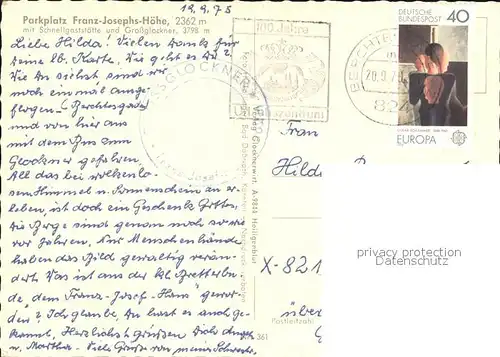 19.9.75
Parkplatz Franz-Josephs-Höhe, 2362 m
mit Schnellgaststätte und Großglockner, 3798 m
Liebe Hilda! Vielen Dank für
Deine lb. Karte. Wie geht es Dir?
Wie Du siehst sind wir
noch einmal ausge-
flogen (Berchtesgaden)
und von hier aus
mit dem Bus zum
Glockner gefahren.
All das bei wolkenlo-
sem Himmel u. Sonnenschein zu er-
leben, ist doch ein Geschenk Gottes.
Die Berge sind genau noch so wie
vor Jahren. Nur Menschenhände
haben das Bild gewaltig verän-
dert. Was ist aus der kl. Bretterbu-
de "dem Franz-Josef-Haus" gewor-
den? Ich glaube, Du hast es auch ge-
kannt. Herzlichst grüßen Dich
u. Martha. Viele Grüße von meiner Schwester
100 Jahre
GLOCKNER
Verlag Glocknerwirt, A-9844 Heiligenblut
361
BERCHTE
20.9.75
824
DEUTSCHE
BUNDESPOST
40
EUROPA
Frau
Hilde
X-821
über
Postleitzahl
privacy protection
Datenschutz